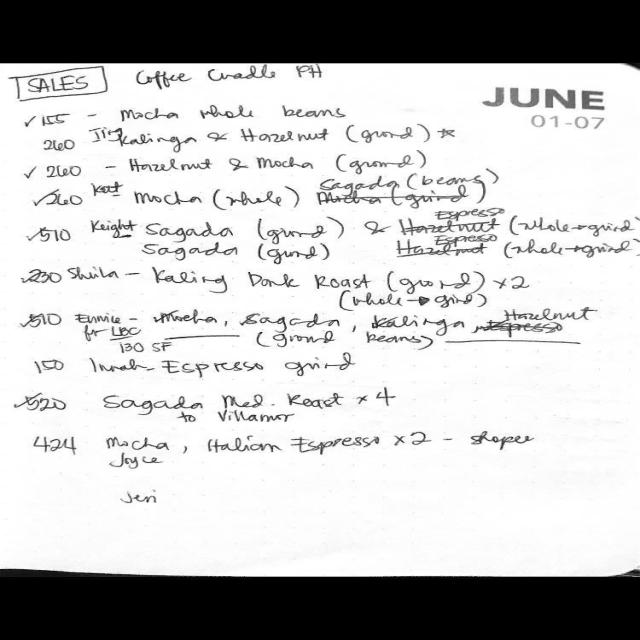 SALES Coffee Cradle PH
JUNE
01-07
✓ 155 - Mocha whole beans
260 Jing Kalinga & Hazelnut (grond) ☆
✓ 260 - Hazelnut & Mocha (grond)
Sagada (beans)
✓ 260 Kat Mocha (whole) Mocha (grind)
Espresso
✓ 510 Keight Sagada (grind) & Hazelnut (whole → grind
Espresso
Sagada (grind) Hazelnut (whole → grind
✓ 230 Sheila - Kaling Dark Roast (grond) x2
(whole → grind)
Hazelnut
✓ 510 Eunice - Mocha, Sagada, Kalinga, Espresso
for LBC (grond beans)
130 SF
150 Innah - Espresso grind
✓ 520 Sagada Med. Roast x 4
to Villamor
424 Mocha, Italian Espresso x 2 - shopee
Joyce
Jeri